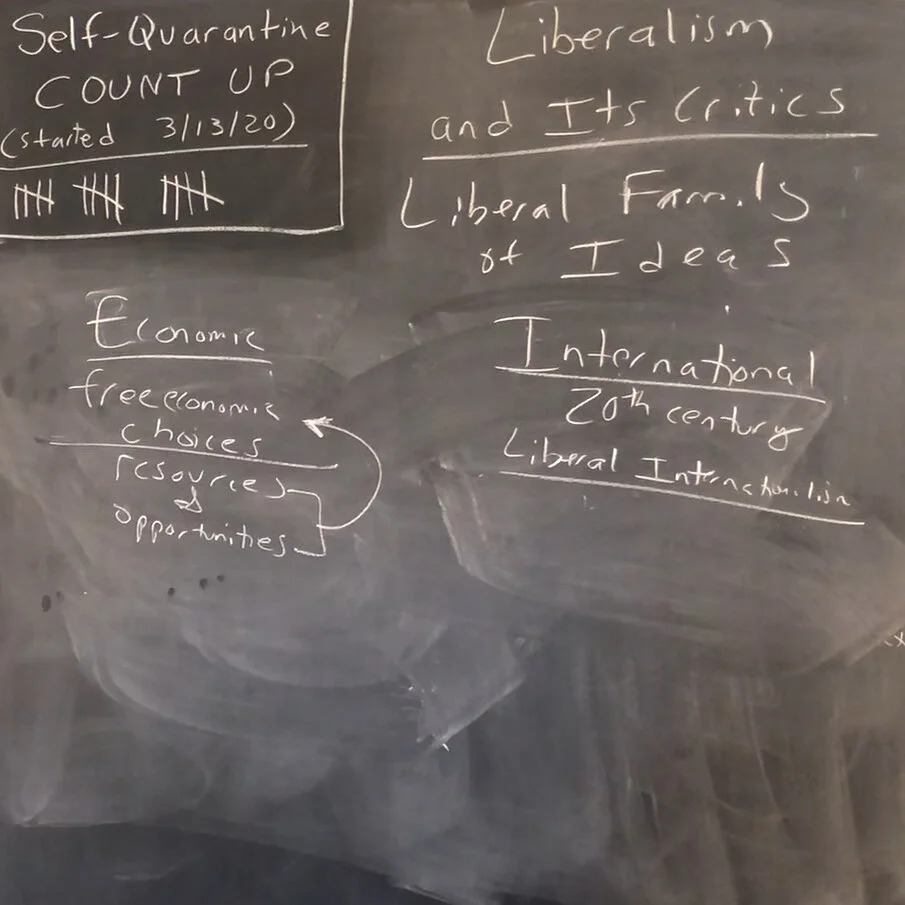 Self-Quarantine
COUNT UP
(started 3/13/20)
Liberalism
and Its Critics
Liberal Family
of Ideas
Economic
free economic
choices
resources
&
opportunities
International
20th century
Liberal Internationalism